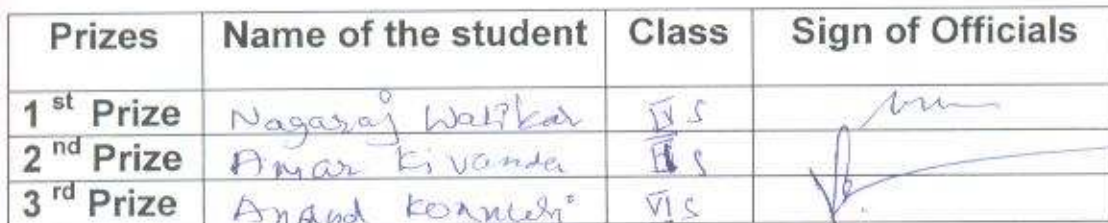 Prizes Name of the student Class Sign of Officials
1 st Prize Nagaraj Walikar IV S
2 nd Prize Amar Kivanda II S
3 rd Prize Anand VI S